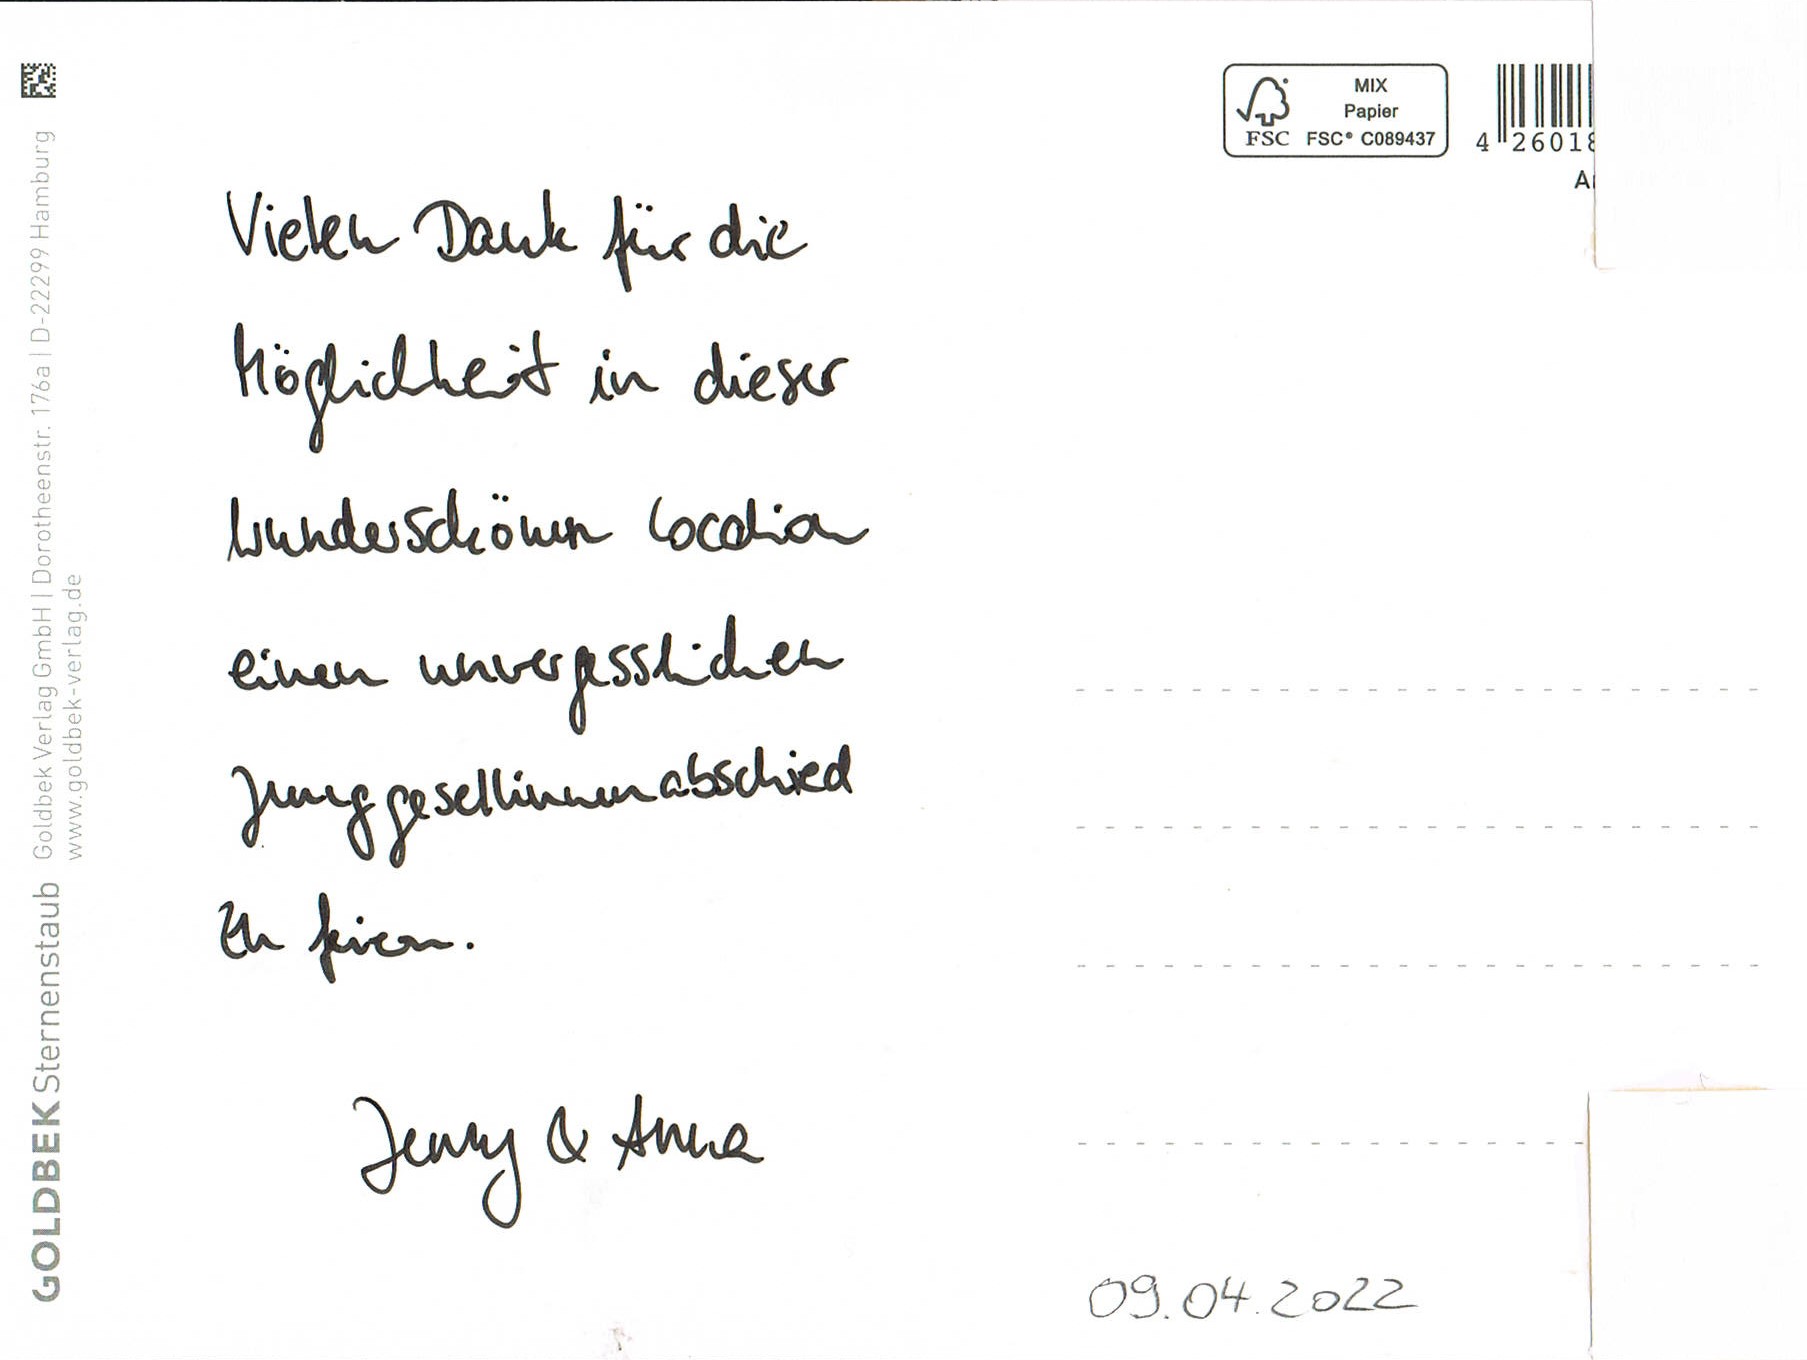 Vielen Dank für die
Möglichkeit in dieser
wunderschönen Location
einen unvergesslichen
Junggesellinnenabschied
zu feiern.
Jenny & Anna
09.04.2022
MIX
Papier
FSC FSC® C089437
4 26018
GOLDBEK Sternenstaub Goldbek Verlag GmbH | Dorotheenstr. 176a | D-22299 Hamburg
www.goldbek-verlag.de